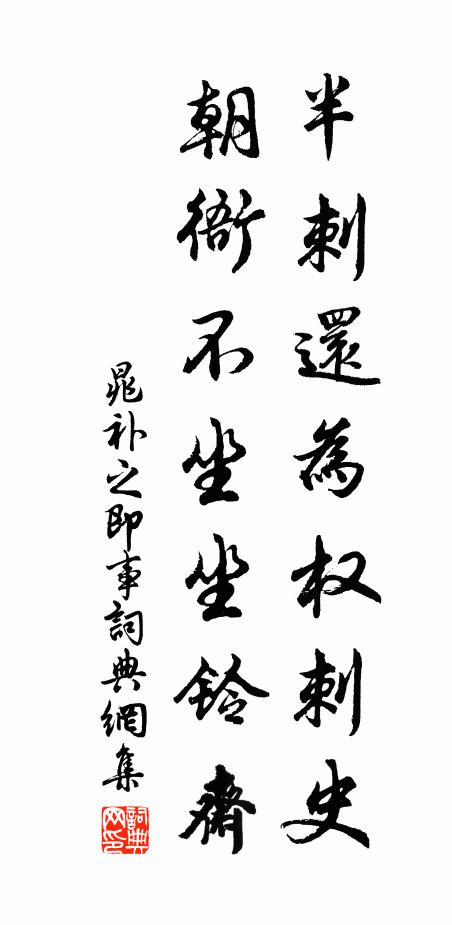 半刺還為权刺史
朝衙不坐坐鈴齋
晁补之即事詞典網集
詞典网印